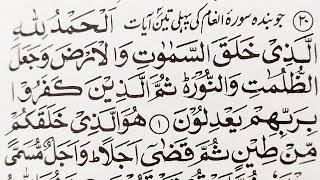 (۲۰) جو بندہ سورۂ انعام کی پہلی تین آیات اَلْحَمْدُ لِلّٰهِ
الَّذِیْ خَلَقَ السَّمٰوٰتِ وَالْاَرْضَ وَجَعَلَ
الظُّلُمٰتِ وَالنُّوْرَ ؕ ثُمَّ الَّذِیْنَ كَفَرُوْا
بِرَبِّهِمْ یَعْدِلُوْنَ (۱) هُوَ الَّذِیْ خَلَقَكُمْ
مِّنْ طِیْنٍ ثُمَّ قَضٰۤی اَجَلًا ؕ وَاَجَلٌ مُّسَمًّی